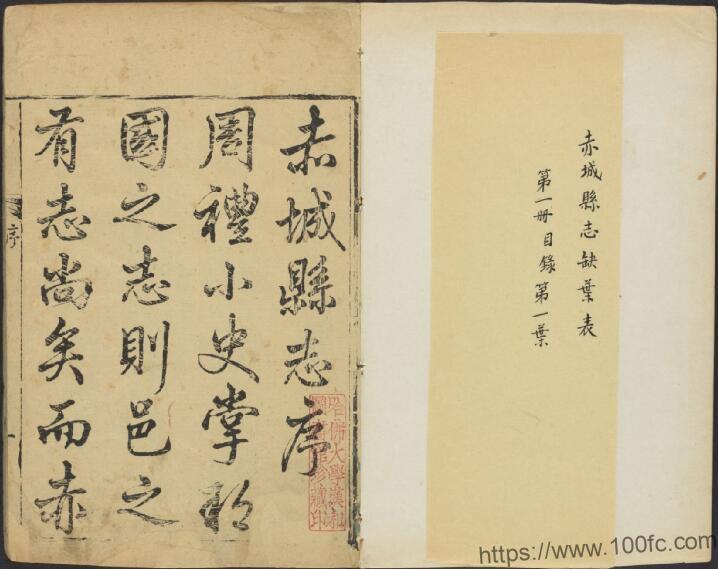 赤城縣志缺葉表
第一冊目錄第一葉
赤城縣志序
周禮小史掌邦
國之志則邑之
有志尚矣而赤
序
哈佛大學漢和
圖書館珍藏印
https://www.100fc.com